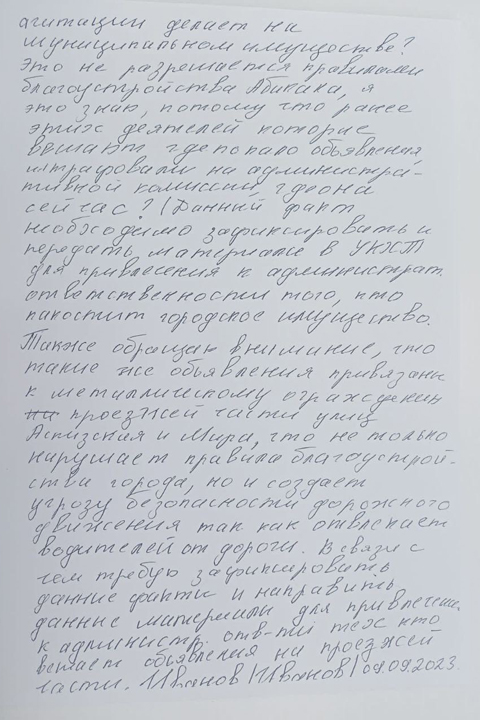 агитации делает на
муниципальном имуществе?
Это не разрешается правилами
благоустройства Абакана, я
это знаю, потому что ранее
этих деятелей которые
вешают где попало объявления
штрафовали на администра-
тивной комиссии, где она
сейчас? | Данный факт
необходимо зафиксировать и
передать материалы в УКХТ
для привлечения к администрат.
ответственности того, кто
пакостит городское имущество.
Также обращаю внимание, что
такие же объявления привязаны
к металлическому ограждению
проезжей части улиц
Аскизская и Мира, что не только
нарушает правила благоустрой-
ства города, но и создает
угрозу безопасности дорожного
движения так как отвлекает
водителей от дороги. В связи с
чем требую зафиксировать
данные факты и направить
данные материалы для привлечения
к администр. отв-ти тех кто
вешает объявления на проезжей
части. Иванов |Иванов| 09.09.2023.